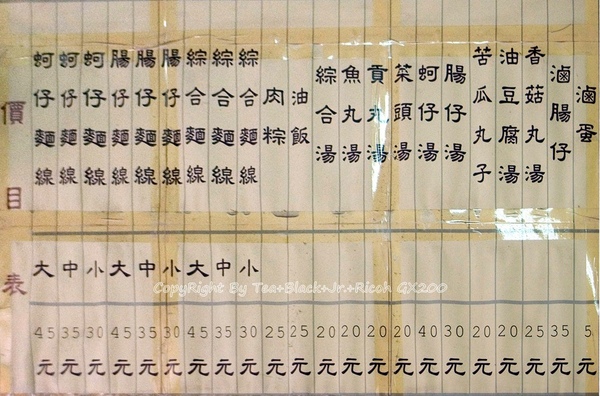 價目表
蚵仔麵線 大 45元
蚵仔麵線 中 35元
蚵仔麵線 小 30元
腸仔麵線 大 45元
腸仔麵線 中 35元
腸仔麵線 小 30元
綜合麵線 大 45元
綜合麵線 中 35元
綜合麵線 小 30元
肉粽 25元
油飯 25元
綜合湯 20元
魚丸湯 20元
貢丸湯 20元
菜頭湯 20元
蚵仔湯 40元
腸仔湯 30元
苦瓜丸子 20元
油豆腐湯 20元
香菇丸湯 25元
滷腸仔 35元
滷蛋 5元
CopyRight By Tea+Black+Jr.+Ricoh GX200